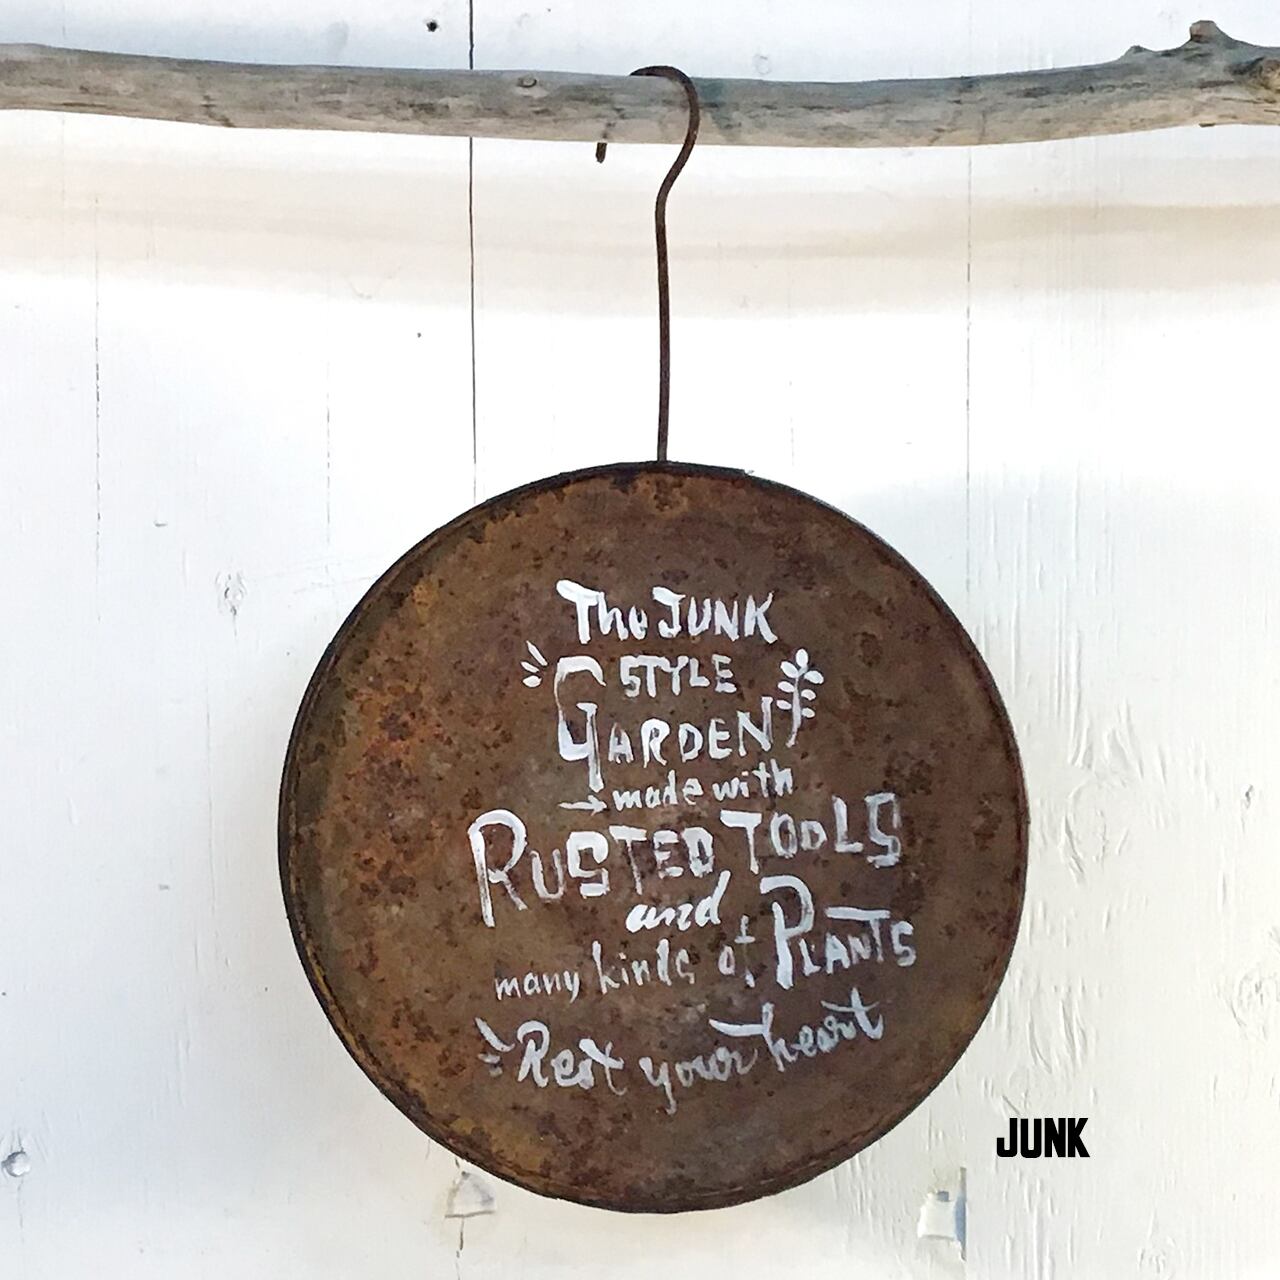 The JUNK
STYLE
GARDEN
made with
RUSTED TOOLS
and
many kinds of PLANTS
Rest your heart
JUNK